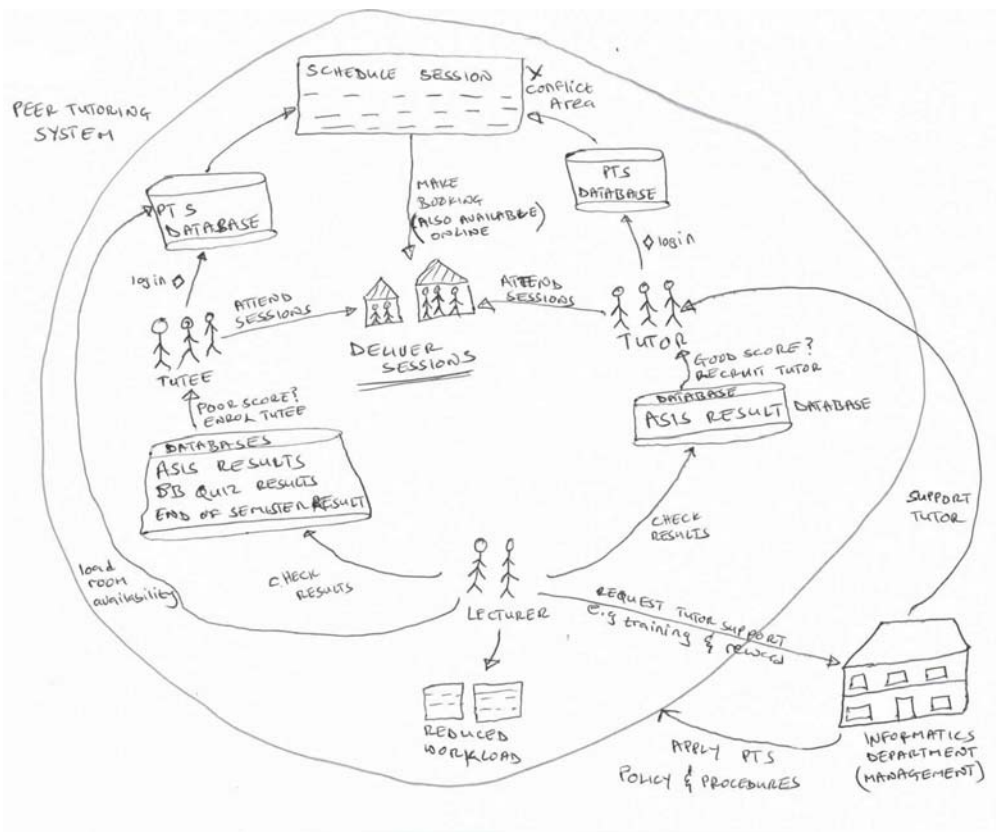 SCHEDULE SESSION
X
Conflict
Area
PEER TUTORING
SYSTEM
PTS
DATABASE
PTS
DATABASE
MAKE
BOOKING
(ALSO AVAILABLE)
ONLINE
login
login
ATTEND
SESSIONS
ATTEND
SESSIONS
TUTEE
DELIVER
SESSIONS
TUTOR
POOR SCORE?
ENROL TUTEE
GOOD SCORE?
RECRUIT TUTOR
DATABASES
ASIS RESULTS
BB QUIZ RESULTS
END OF SEMISTER RESULT
DATABASE
ASIS RESULT
DATABASE
load
room
availability
CHECK
RESULTS
CHECK
RESULTS
SUPPORT
TUTOR
LECTURER
REQUEST TUTOR SUPPORT
e.g training & reward
REDUCED
WORKLOAD
APPLY PTS
POLICY & PROCEDURES
INFORMATICS
DEPARTMENT
(MANAGEMENT)